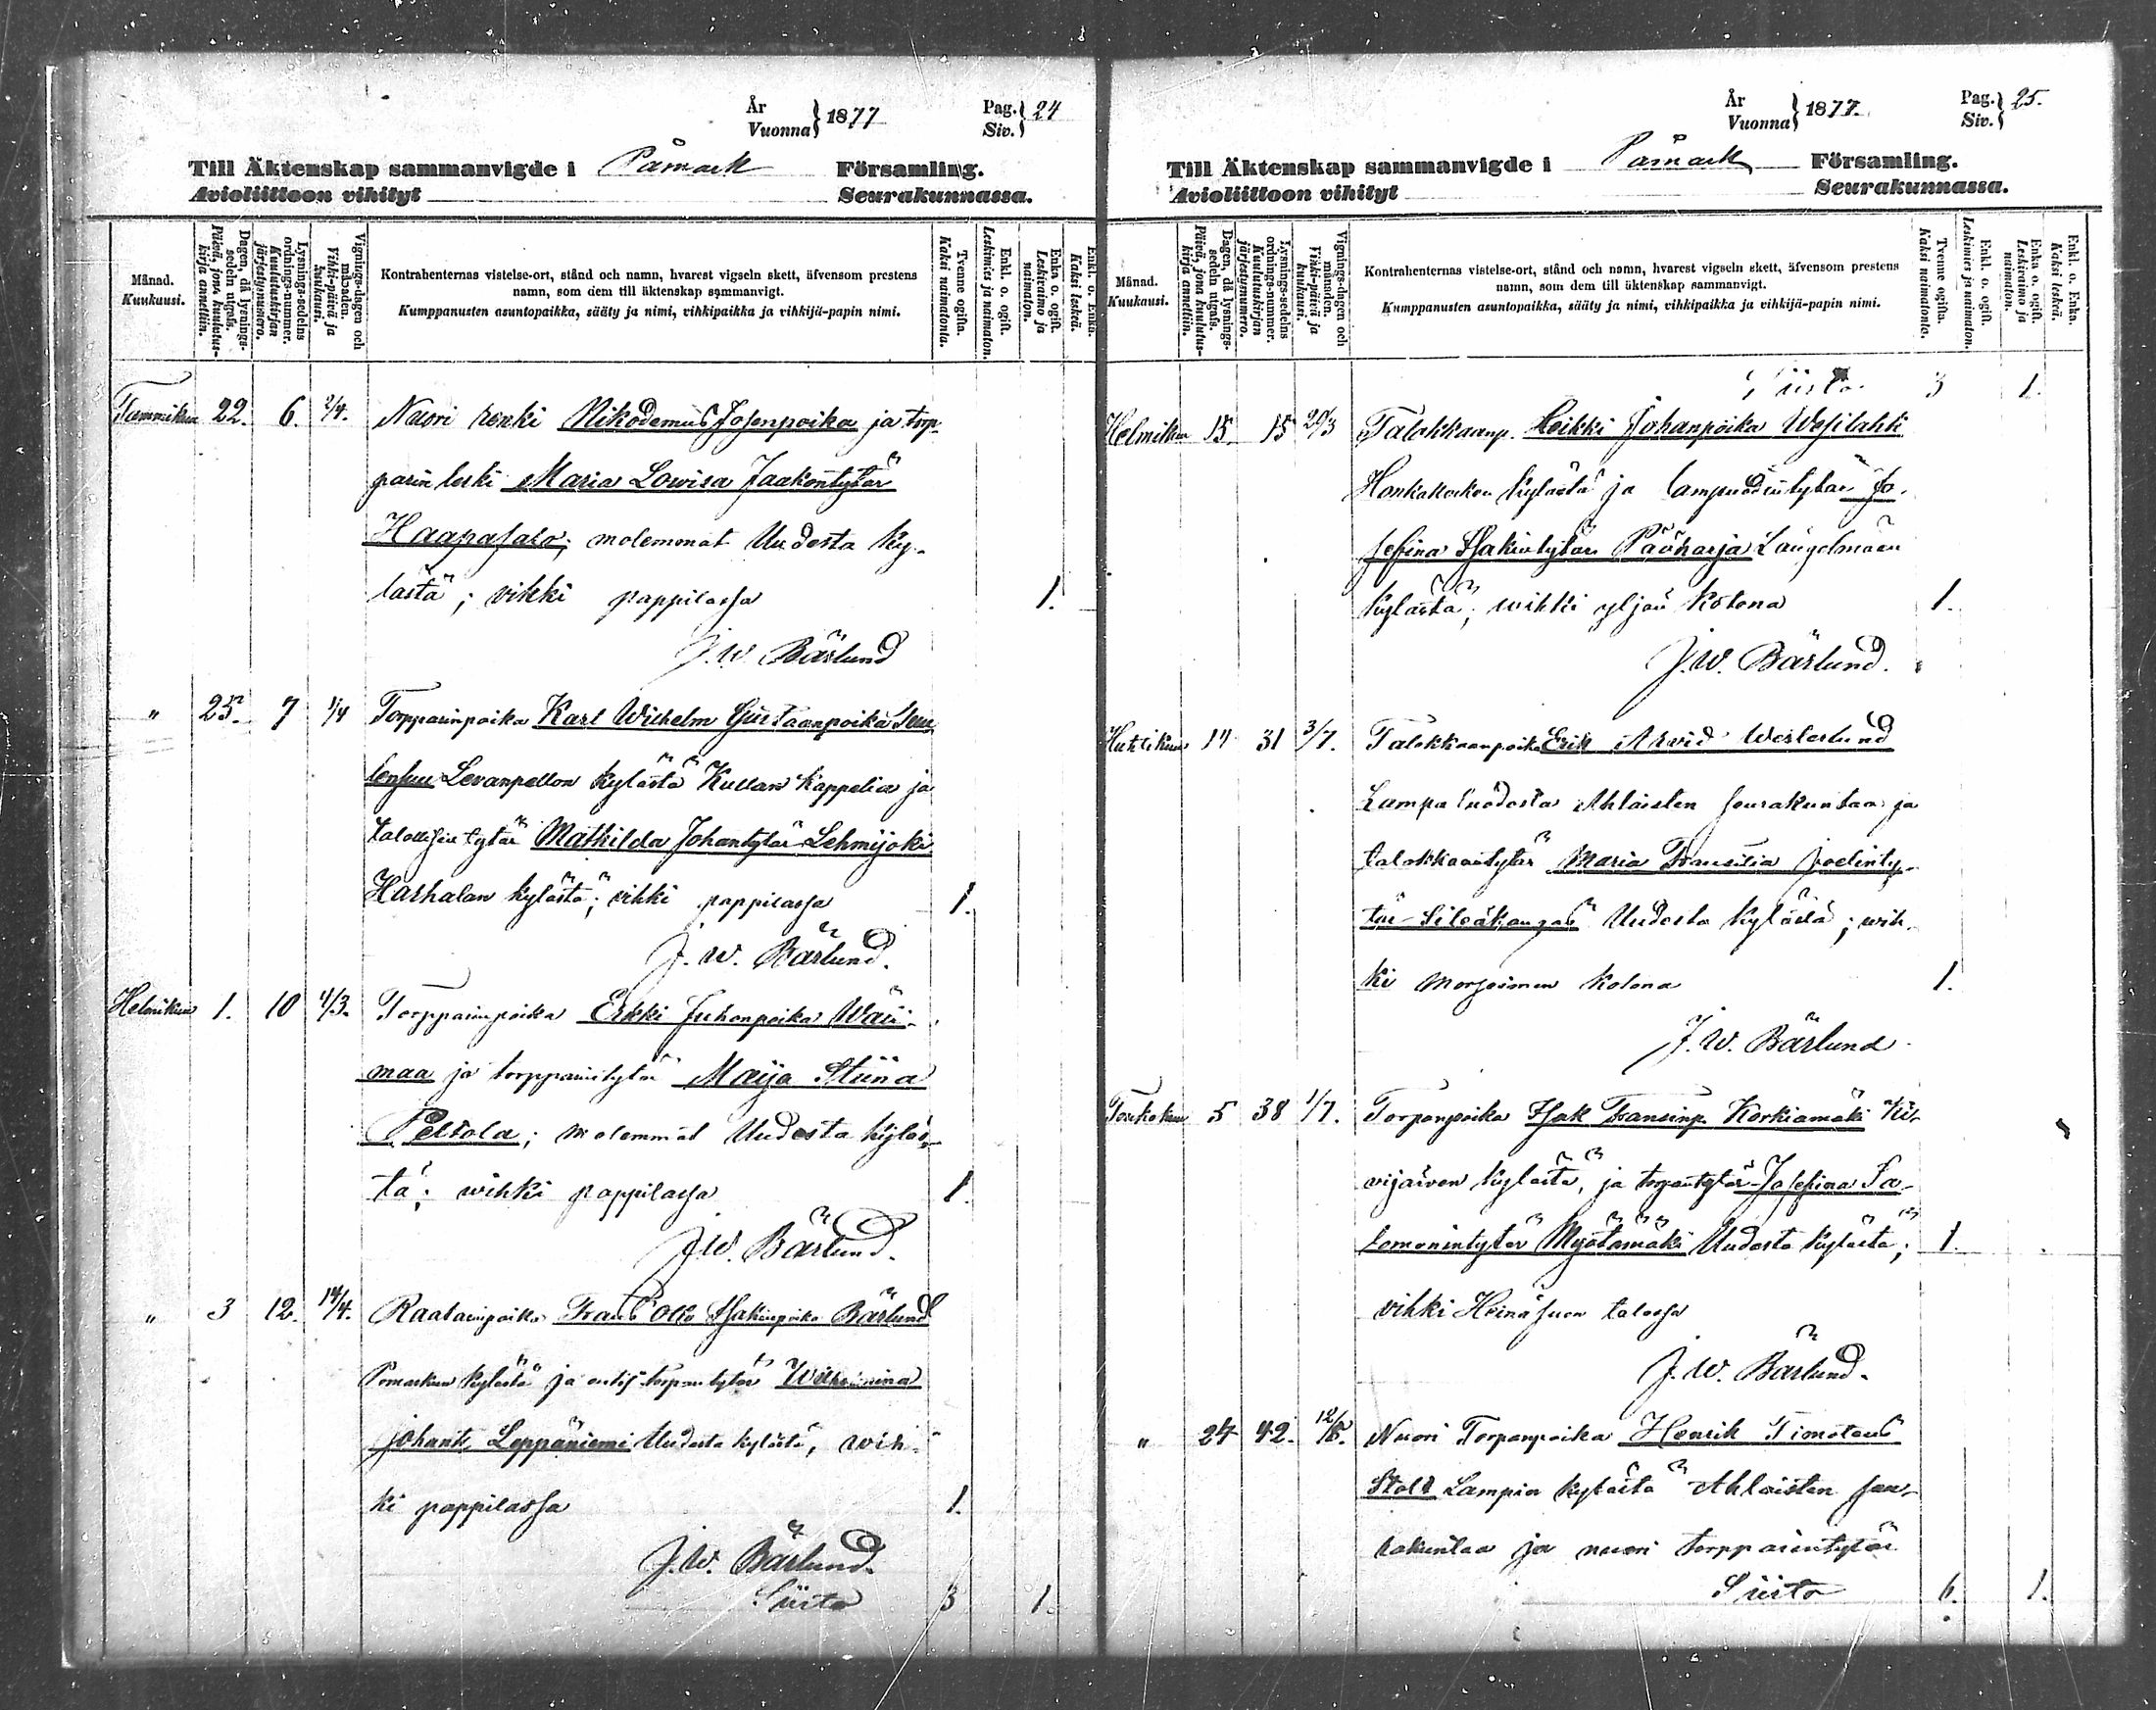 År
Vuonna } 1877
Pag.
Siv. } 24
Till Äktenskap sammanvigde i Påmark Församling.
Avioliittoon vihityt Seurakunnassa.
Månad.
Kuukausi.
Dagen, då lysnings-
sedeln utgafs.
Päivä, jona kuulutus-
kirja annettiin.
Lysnings-sedelns
ordnings-nummer.
Kuulutuskirjan
järjestysnumero.
Vignings-dagen och
månaden.
Vihki-päivä ja
kuukausi.
Kontrahenternas vistelse-ort, stånd och namn, hvarest vigseln skett, äfvensom prestens
namn, som dem till äktenskap sammanvigt.
Kumppanusten asuntopaikka, sääty ja nimi, vihkipaikka ja vihkijä-papin nimi.
Tvenne ogifta.
Kaksi naimatonta.
Enkl. o. ogift.
Leskimies ja naimaton.
Enka o. ogift.
Leskivaimo ja
naimaton.
Enkl. o. Enka.
Kaksi leskeä.
Tammikuu 22. 6. 2/4. Nuori renki Nikodemus Josenpoika ja torp-
parin leski Maria Lowisa Jaakontytär
Haapasalo; molemmat Uudesta ky-
lästä; vihki pappilassa 1.
J. W. Bärlund
" 25. 7 1/4 Torpparinpoika Karl Wilhelm Gustaanpoika
Levanpellon kylästä Kullan kappelia ja
talollisen tytär Mathilda Johantytär Lehmijoki
Harhalan kylästä; vihki pappilassa 1.
J. W. Bärlund.
Helmikuu 1. 10 4/3. Torpparinpoika Erkki Juhonpoika Wäii-
maa ja torpparintytär Maija Stiina
Peltola; molemmat Uudesta kyläs-
tä; wihki pappilassa 1.
J. W. Bärlund.
" 3 12. 14/4. Raatarinpoika Frans Otto Isakinpoika Bärlund
Pomarkun kylästä ja entis. torpantytär Wilhelmina
Johant. Leppäniemi Uudesta kylästä, wih-
ki pappilassa 1.
J. W. Bärlund.
Siirto 3 1.
År
Vuonna } 1877.
Pag.
Siv. } 25.
Till Äktenskap sammanvigde i Påmark Församling.
Avioliittoon vihityt Seurakunnassa.
Månad.
Kuukausi.
Dagen, då lysnings-
sedeln utgafs.
Päivä, jona kuulutus-
kirja annettiin.
Lysnings-sedelns
ordnings-nummer.
Kuulutuskirjan
järjestysnumero.
Vignings-dagen och
månaden.
Vihki-päivä ja
kuukausi.
Kontrahenternas vistelse-ort, stånd och namn, hvarest vigseln skett, äfvensom prestens
namn, som dem till äktenskap sammanvigt.
Kumppanusten asuntopaikka, sääty ja nimi, vihkipaikka ja vihkijä-papin nimi.
Tvenne ogifta.
Kaksi naimatonta.
Enkl. o. ogift.
Leskimies ja naimaton.
Enka o. ogift.
Leskivaimo ja
naimaton.
Enkl. o. Enka.
Kaksi leskeä.
Siirto 3 1.
Helmikuu 15. 15 29/3 Talokkaanp. Heikki Johanpoika Wesilahti
Honkakosken kylästä ja lampuodintytär Jo-
sefina Isakintytär Pääharja Längelmäen
kylästä; wihki yljän kotona 1.
J. W. Bärlund.
Huhtikuu 14 31 3/7. Talokkaanpoika Erik Arvid Westerlund
Lampaluodosta Ahlaisten seurakuntaa ja
talokkaantytär Maria Fransilia Joelinty-
tär Sileäkangas Uudesta kylästä; wih-
ki morsiamen kotona 1.
J. W. Bärlund
Toukokuu 5 38 1/7. Torpanpoika Isak Fransinp. Korkiamäki Ki-
vijärven kylästä, ja torpantytär Josefina Sa-
lomonintytär Myötämäki Uudesta kylästä; 1.
vihki Heinäsuon talossa
J. W. Bärlund.
" 24 42. Nuori Torpanpoika Henrik Timoteus
Stolt Lampin kylästä Ahlaisten seu-
rakuntaa ja nuori torpparintytär
Siirto 6. 1.